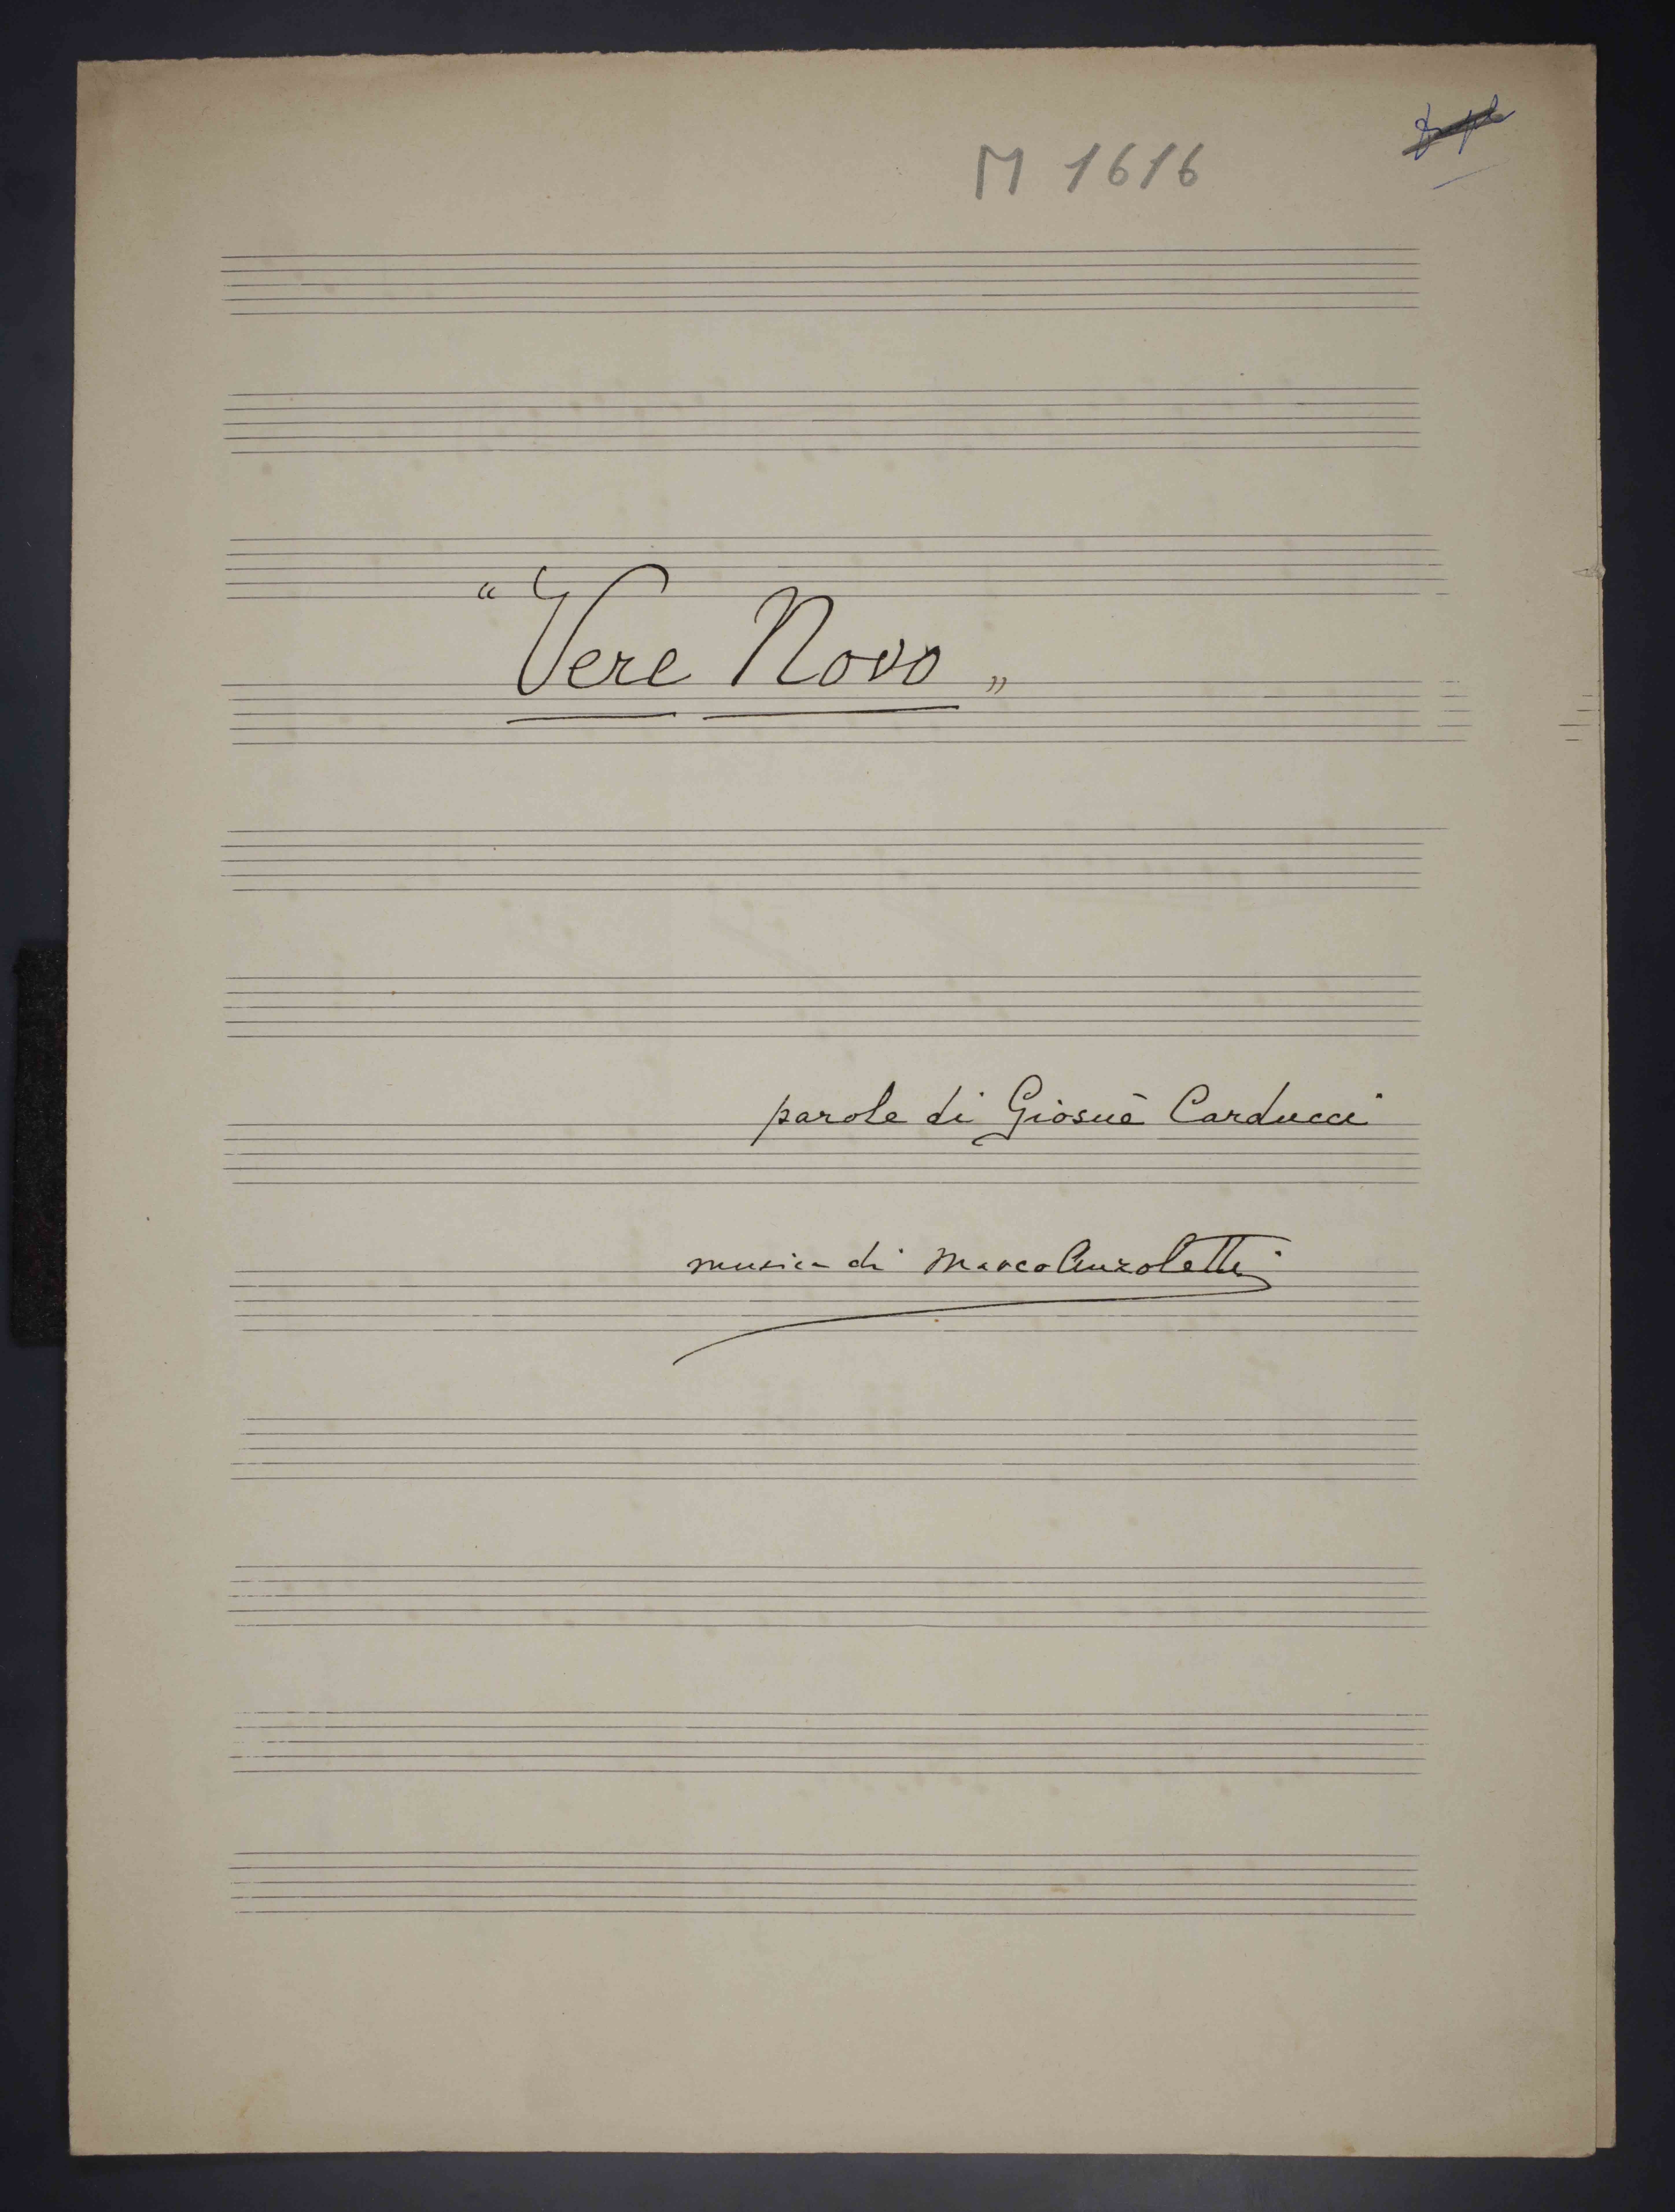 M 1616
“Vere Novo„
parole di Giosuè Carducci
musica di Marco Anzoletti